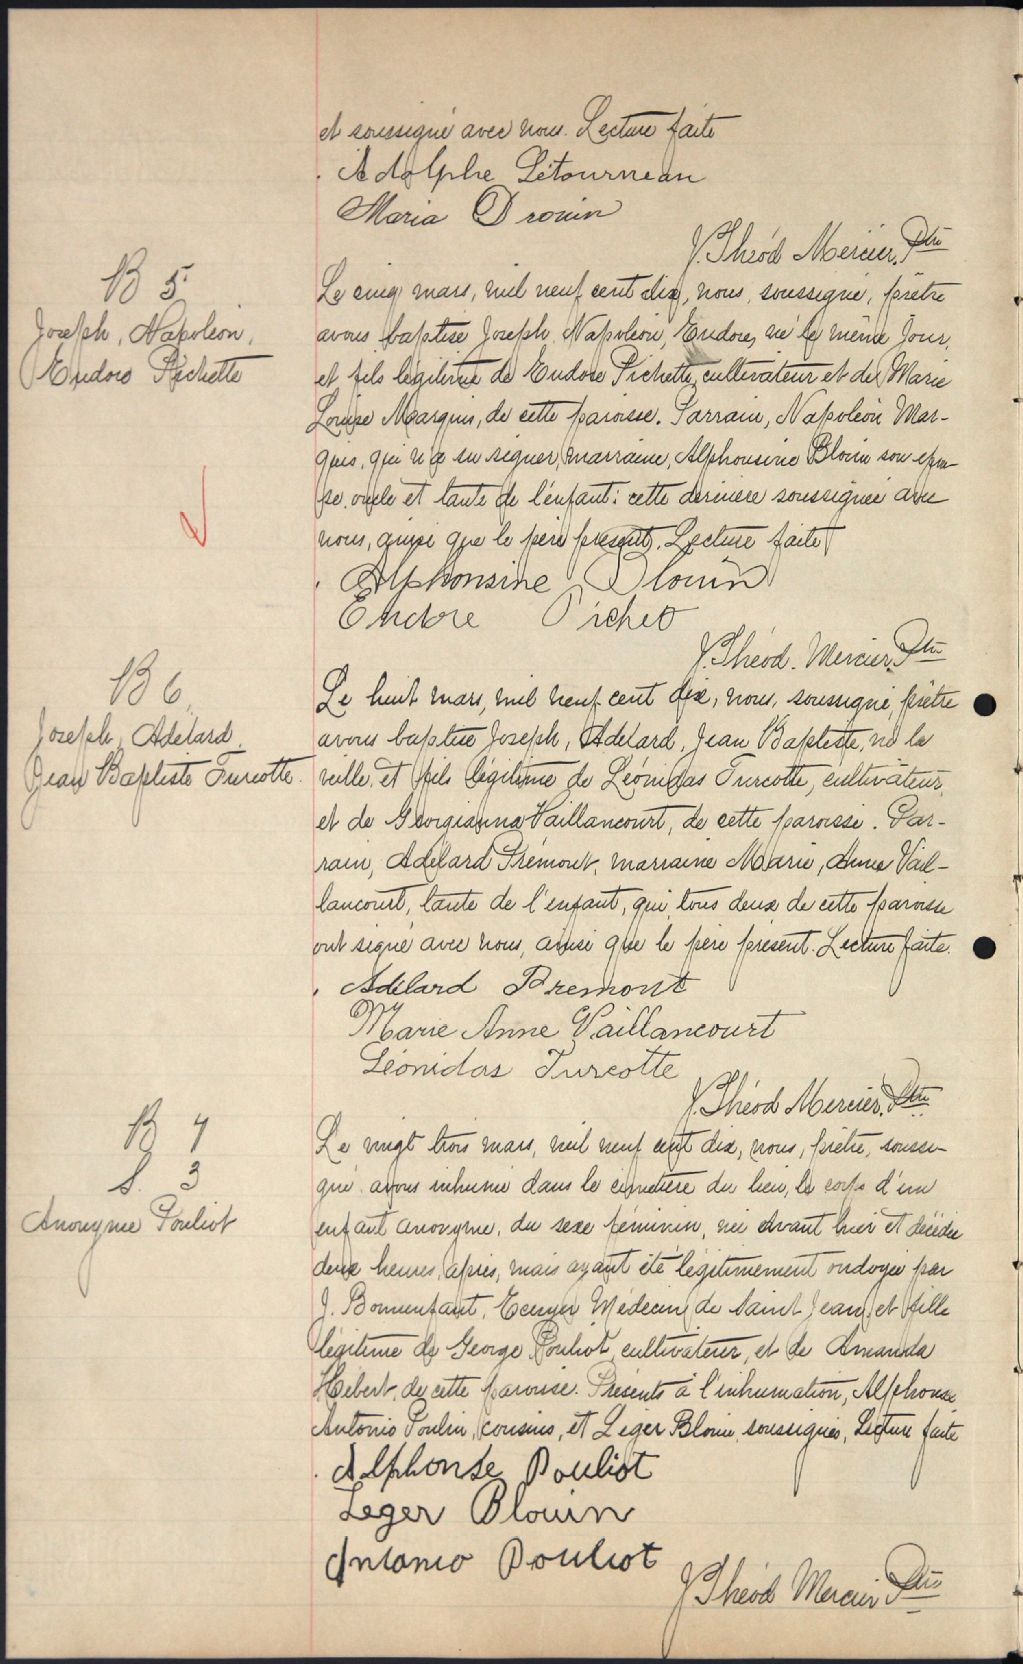 et soussigné avec nous. Lecture faite
Adolphe Létourneau
Maria Drouin
J. Théod Mercier, Ptre
B 5
Joseph, Napoléon,
Eudore Pichette
Le cinq mars, mil neuf cent dix, nous, soussigné, prêtre
avons baptisé Joseph, Napoléon, Eudore, né le même jour,
et fils légitime de Eudore Pichette, cultivateur et de Marie
Louise Marquis, de cette paroisse. Parrain, Napoléon Mar-
quis, qui n'a su signer, marraine, Alphonsine Blouin son épou-
se, oncle et tante de l'enfant: cette dernière soussignée avec
nous, ainsi que le père présent. Lecture faite
Alphonsine Blouin
Eudore Pichet
J. Théod. Mercier, Ptre
B 6
Joseph, Adélard,
Jean Baptiste Turcotte.
Le huit mars, mil neuf cent dix, nous, soussigné, prêtre
avons baptisé Joseph, Adélard, Jean Baptiste, né la
veille, et fils légitime de Léonidas Turcotte, cultivateur,
et de Georgianna Vaillancourt, de cette paroisse. Par-
rain, Adélard Prémont, marraine Marie, Anne Vail-
lancourt, tante de l'enfant, qui tous deux de cette paroisse
ont signé avec nous, ainsi que le père présent. Lecture faite.
Adélard Premont
Marie Anne Vaillancourt
Léonidas Turcotte
J. Théod Mercier, Ptre
B 7
S. 3
Anonyme Pouliot
Le vingt trois mars, mil neuf cent dix, nous, prêtre, soussi-
gné, avons inhumé dans le cimetière du lieu, le corps d'un
enfant anonyme, du sexe féminin, née avant hier et décédée
deux heures après, mais ayant été légitimement ondoyée par
J. Bonnenfant, Ecuyer Médecin, de Saint Jean, et fille
légitime de George Pouliot, cultivateur, et de Amanda
Hébert, de cette paroisse. Présents à l'inhumation, Alphonse,
Antonio Poulin, cousins, et Léger Blouin, soussignés, Lecture faite
Alphonse Pouliot
Leger Blouin
Antonio Pouliot
J Théod Mercier Ptre